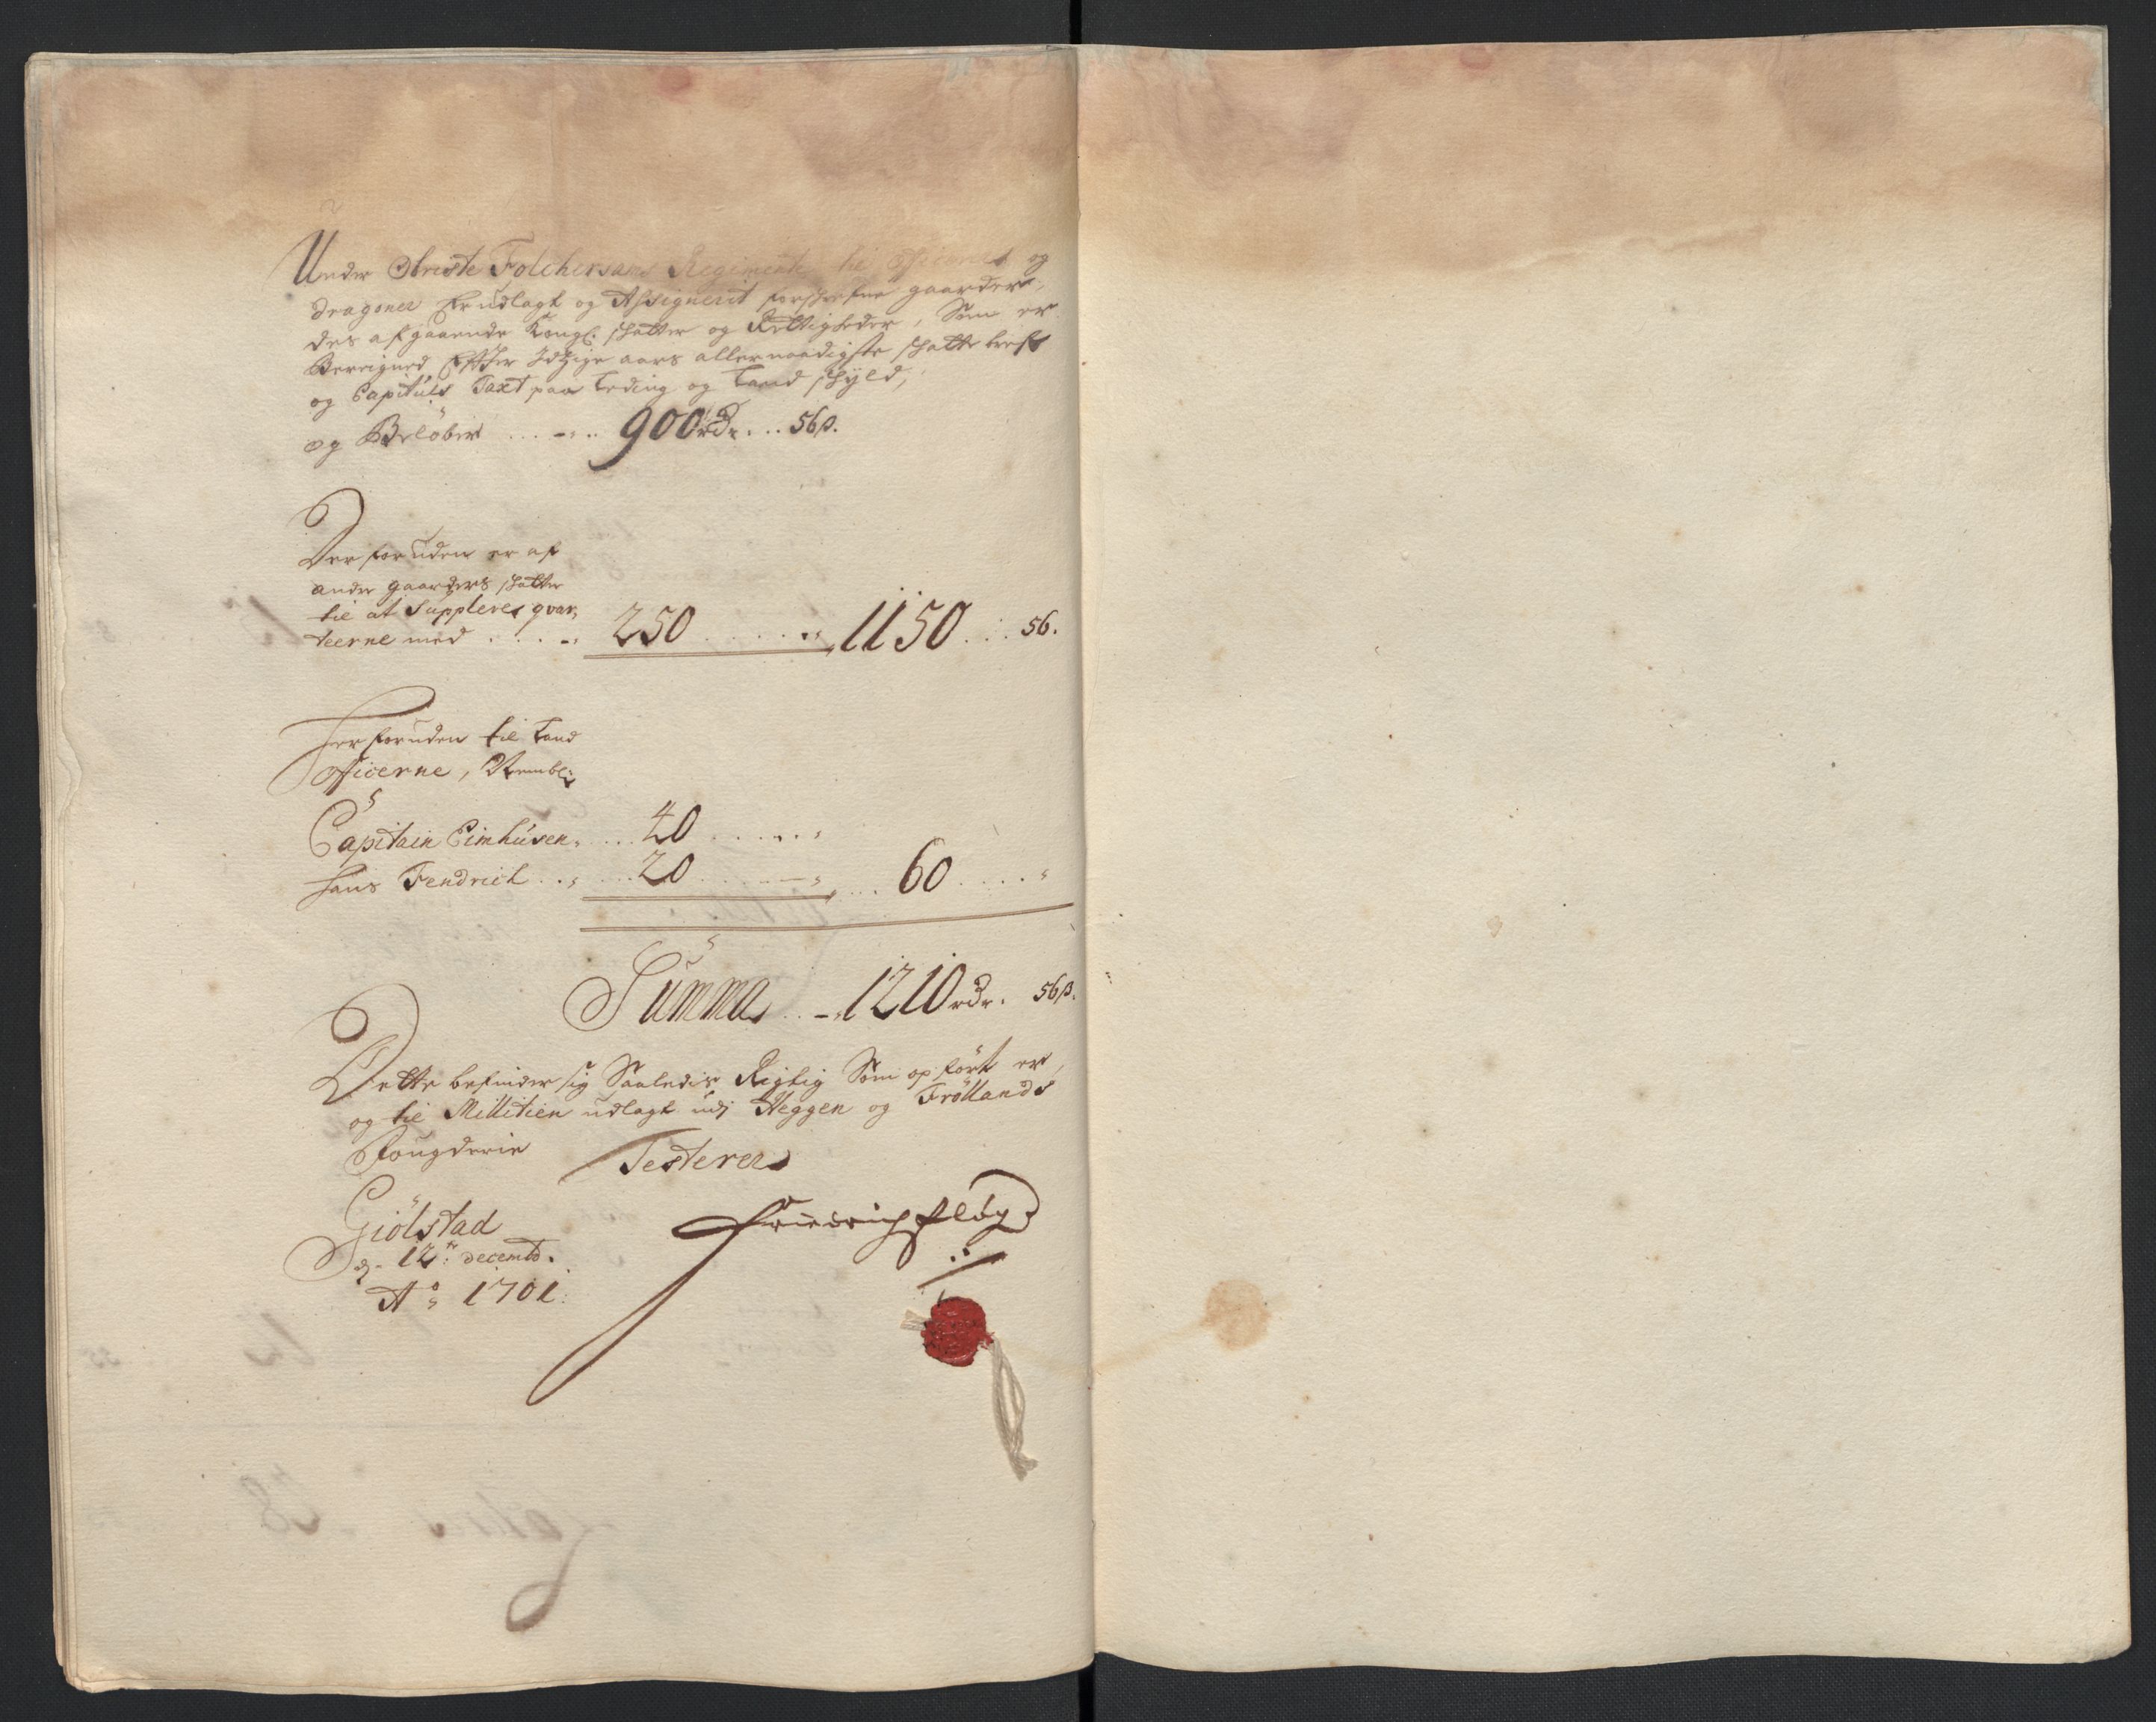 Under Obriste Folchersams Regimente til officerer og
dragoner Er udlagt og Assignerit forschrefne gaarder,
des afgaaende Kongl: schatter og Rettigheder, Som er
Bereigned Efter Idzige aars allernaadigste schatte brefv
og Capituls Taxt paa Leding og Land schyld,
og Beløber ... 900 rdr. .. 56 ß.
Der foruden er af
andre gaarders schatter
til at Suppleres qvar,
teerne med .... 250 ..... 1150 ... 56.
Her foruden til Land
officerne, Nembl:
Capitain Eimhúsen, ... 40 .....
Hans Fendrich ... 20 ..... 60 ....
Summa .. 1210 rdr. 56 ß.
Dette befinder sig Saaledis Rigtig Som op ført er,
og til Millitien udlagt udj Heggen og Frøllands
Fougderie Testerer
Giölstad
d. 12tr: decemb.
Ao: 1701.
Friedrich Pflög